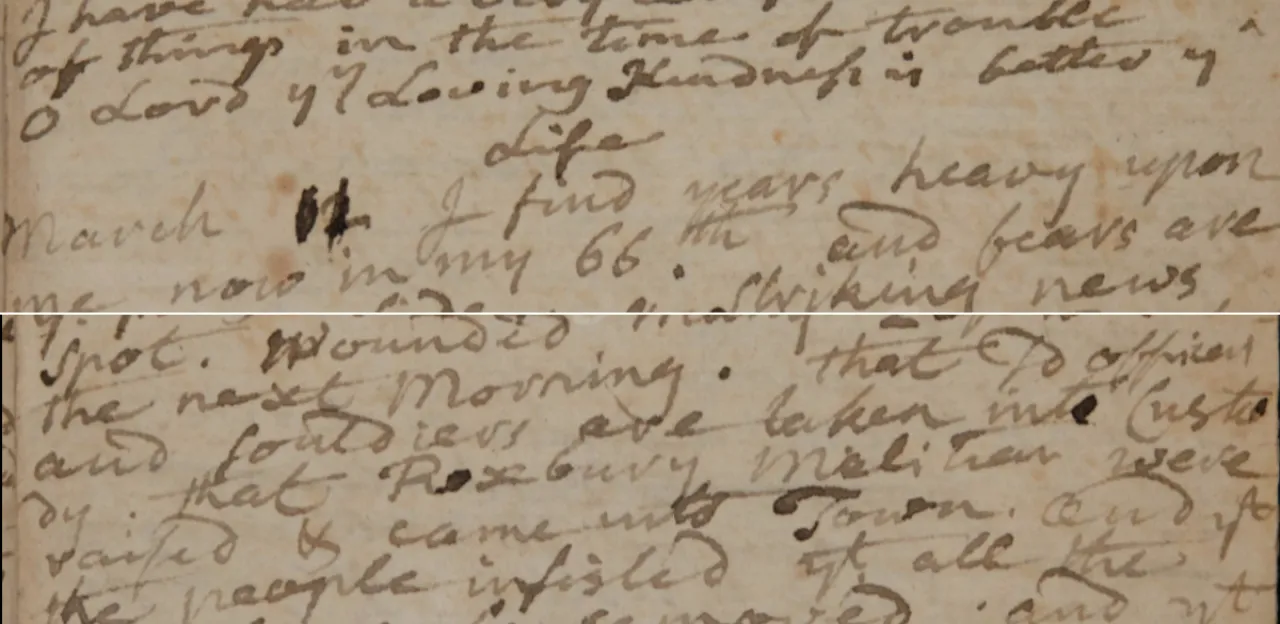 I have had a
of things in the time of trouble
O Lord yr Loving Kindness is better yn
Life
March 11 I find years heavy upon
me now in my 66.th and fears are
Striking news
spot. Wounded
the next Morning. that officers
and souldiers are taken into Custo
dy. that Roxbury Melitiar were
raised & came into Town. and yt
the people insisted yt all the
removed. and yt